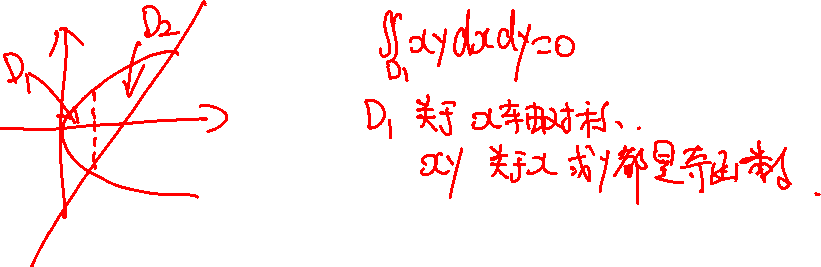 D₂
D₁
∬_{D₁} xydxdy=0
D₁ 关于x轴对称、.
xy 关于x或y都是奇函数.